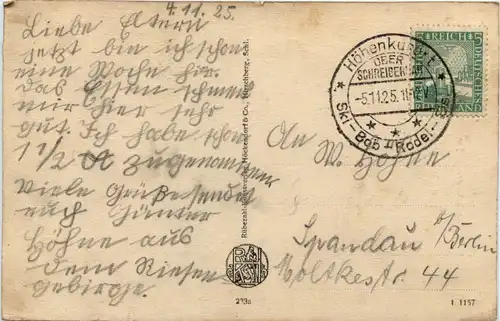 4.11.25.
Liebe Eltern
jetzt bin ich schon
eine Woche hier.
Das Essen schmeckt
mir hier sehr
gut. Ich habe schon
1 1/2 zugenommen
Viele Grüße sendet
euch Günter
Höhne aus
dem Riesen
gebirge.
Rübezahl Höckendorf & Co., Hirschberg, Schl.
213a
Höhenkurort
OBER
SCHREIBERHAU
-5.11.25.
Ski-Bob-Rodel-
REICH
An
W. Höhne
Spandau b/Berlin
Moltkestr. 44
1 1157